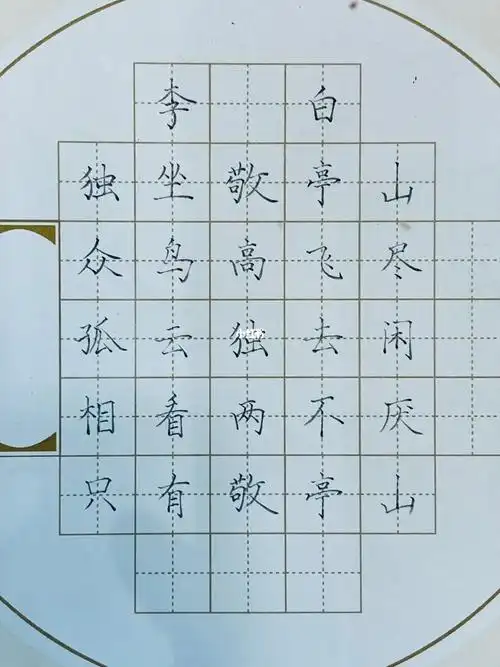 李 白
独坐敬亭山
众鸟高飞尽
孤云独去闲
相看两不厌
只有敬亭山